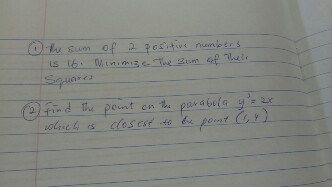 ① The sum of 2 positive numbers
is 16. Minimize the sum of their
squares
② find the point on the parabola y² = 2x
which is closest to the point (1,4)